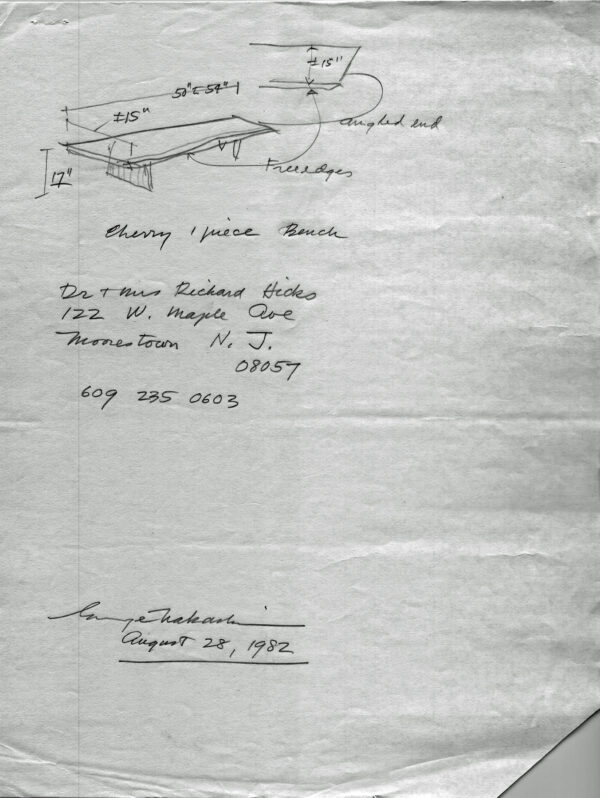 ±15"
50" ± 54"
±15"
angled end
Free edges
17"
Cherry 1 piece Bench
Dr + Mrs Richard Hicks
122 W. Maple Ave
Moorestown N. J.
08057
609 235 0603
George Nakashima
August 28, 1982